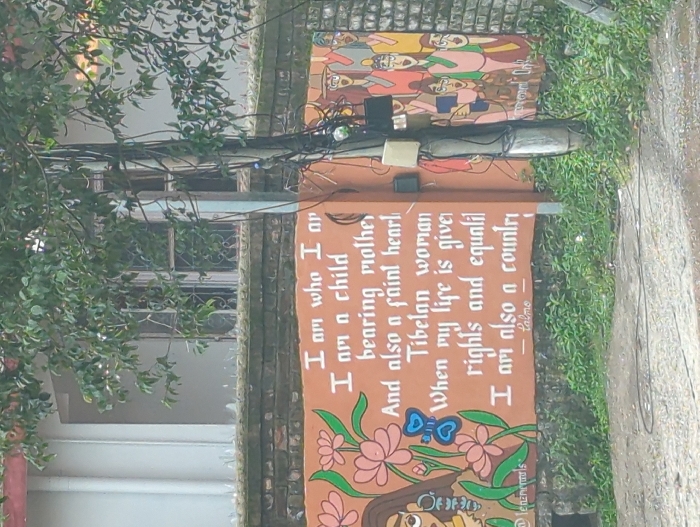 I am who I am
I am a child
bearing mother
And also a faint heart
Tibetan woman
When my life is given
rights and equali
I am also a country
— Palmo —